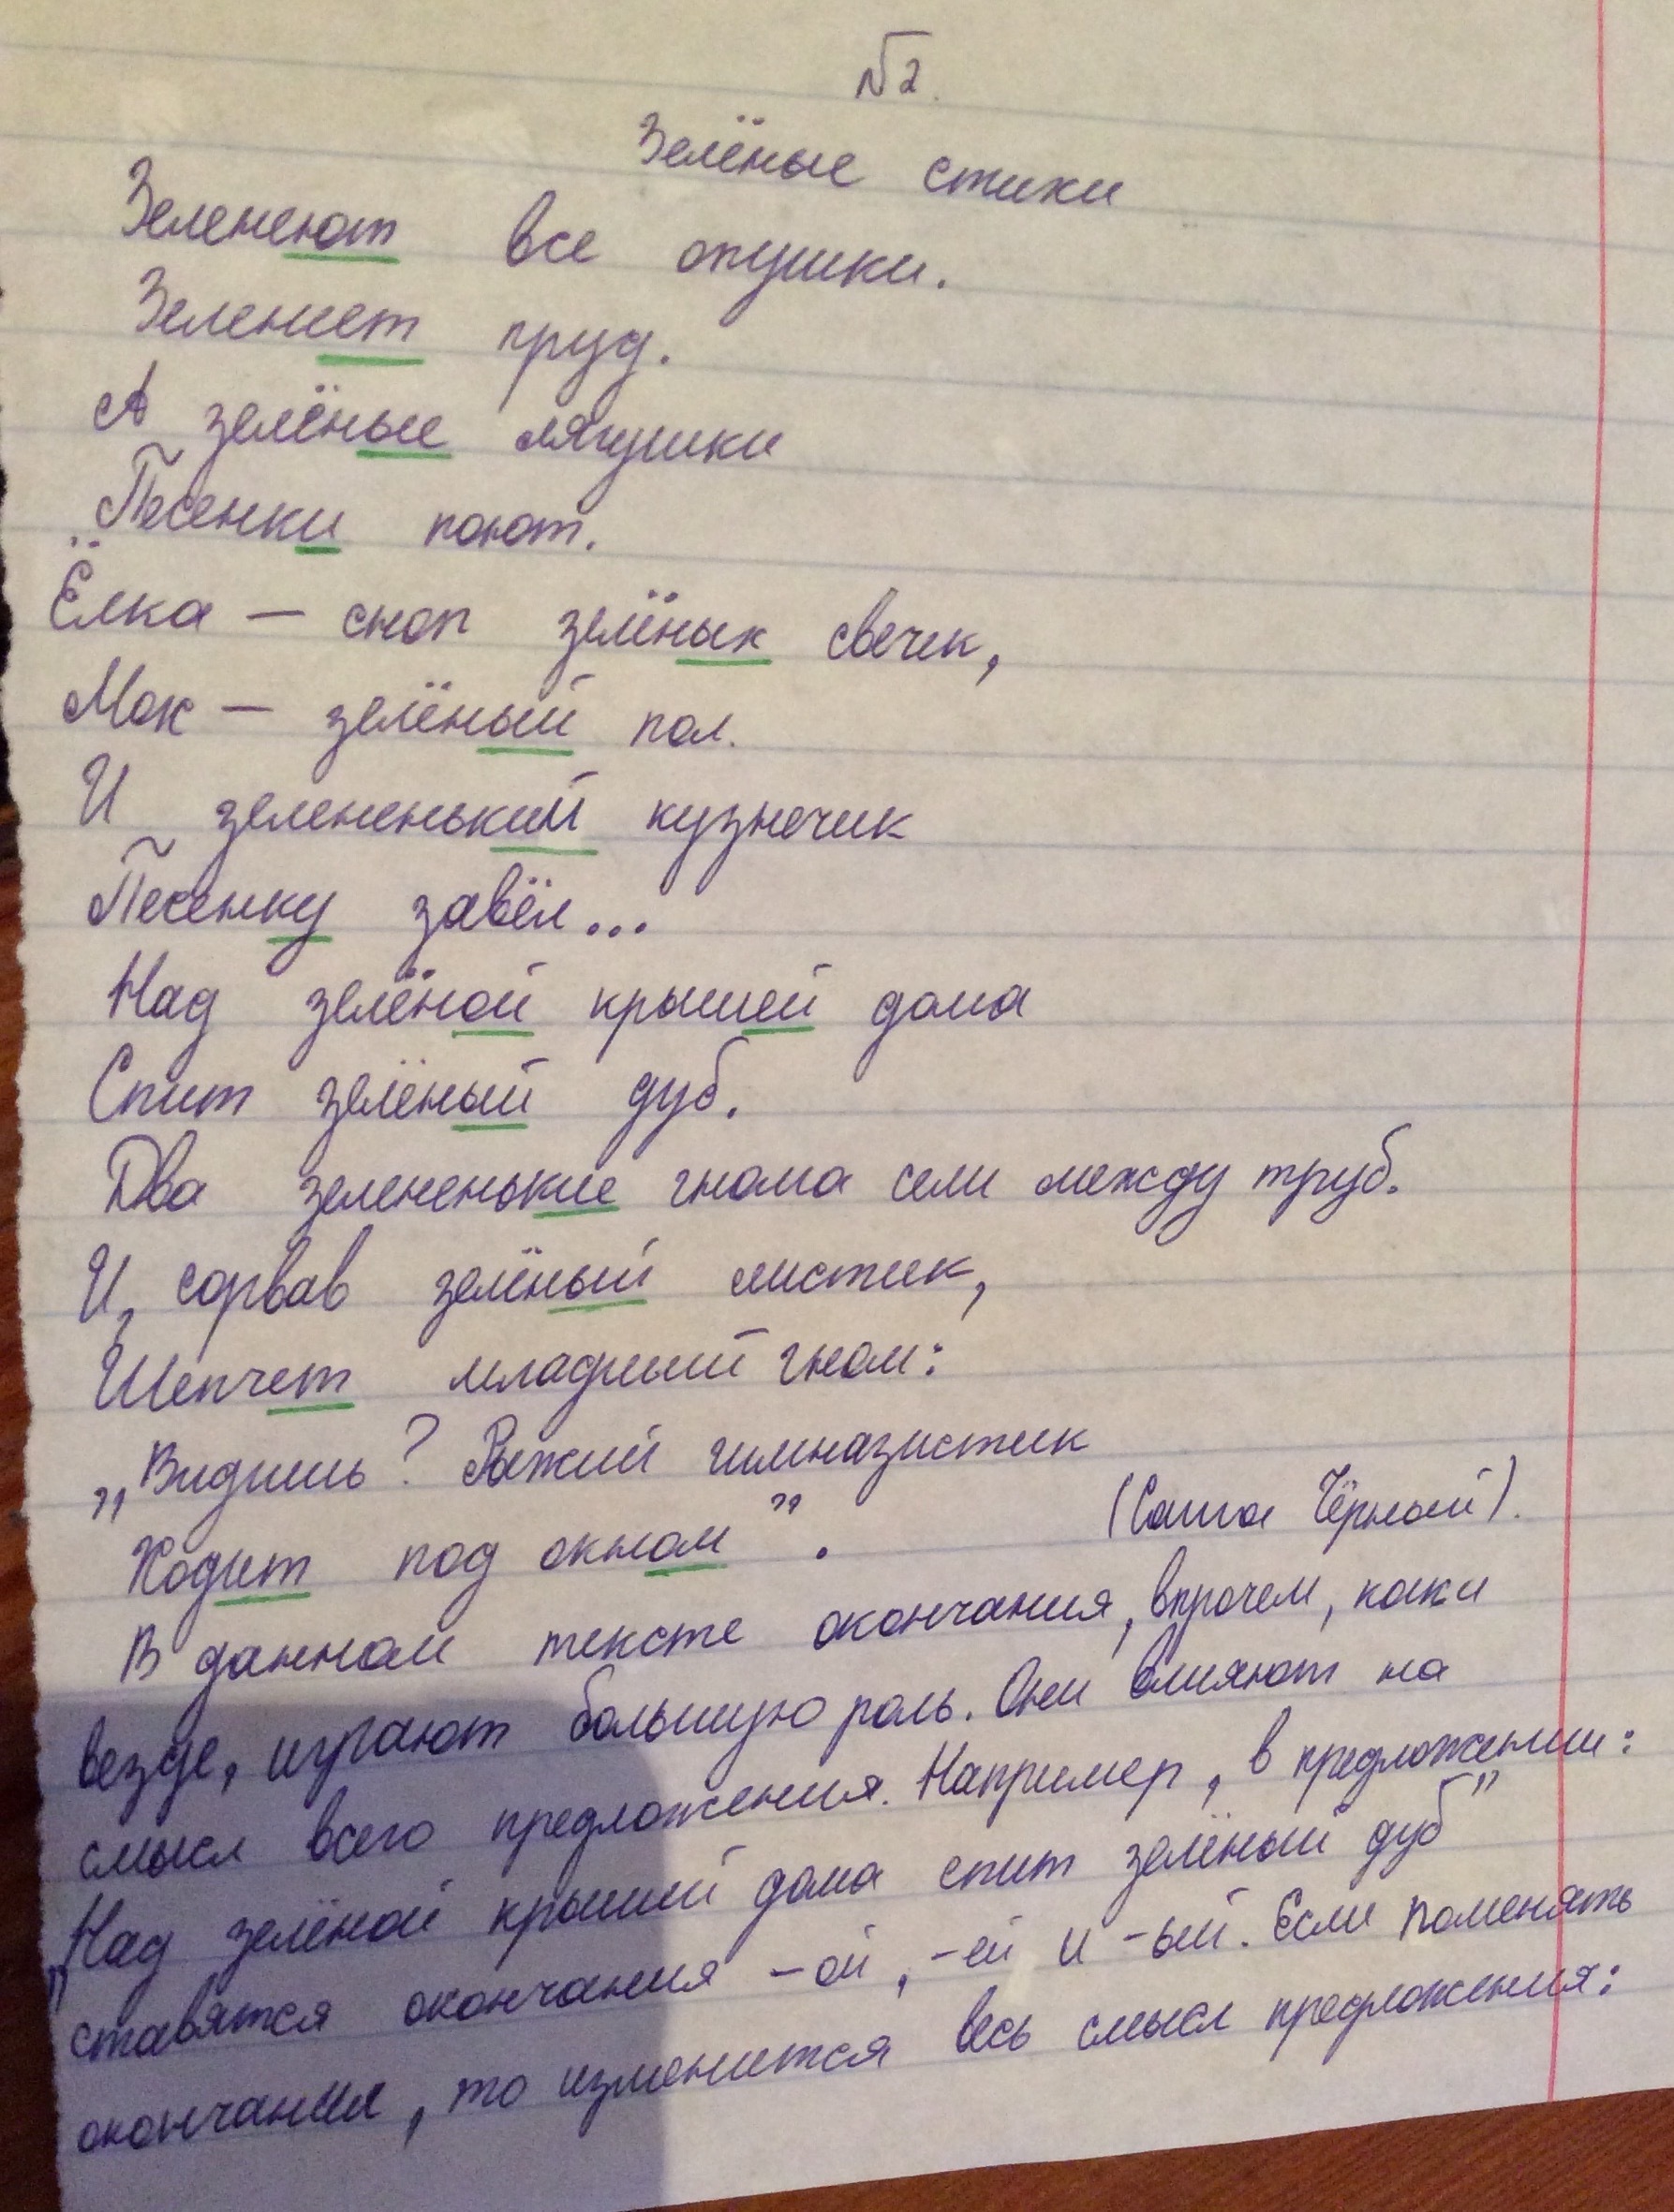 №2.
Зелёные стихи
Зеленеют все опушки.
Зелениет пруд.
А зелёные лягушки
Песенки поют.
Ёлка – сноп зелёных свечек,
Мох – зелёный пол.
И зелененький кузнечик
Песенку завёл...
Над зелёной крышей дома
Спит зелёный дуб.
Два зелененькие гнома сели между труб.
И, сорвав зелёный листик,
Шепчет младший гном:
„Видишь? Рыжий гимназистик
Ходит под окном”.
(Саша Чёрный).
В данном тексте окончания, впрочем, как и
везде, играют большую роль. Они влияют на
смысл всего предложения. Например, в предложении:
„Над зелёной крышей дома спит зелёный дуб”
ставятся окончания -ой, -ей и -ый. Если поменять
окончания, то изменится весь смысл предложения: